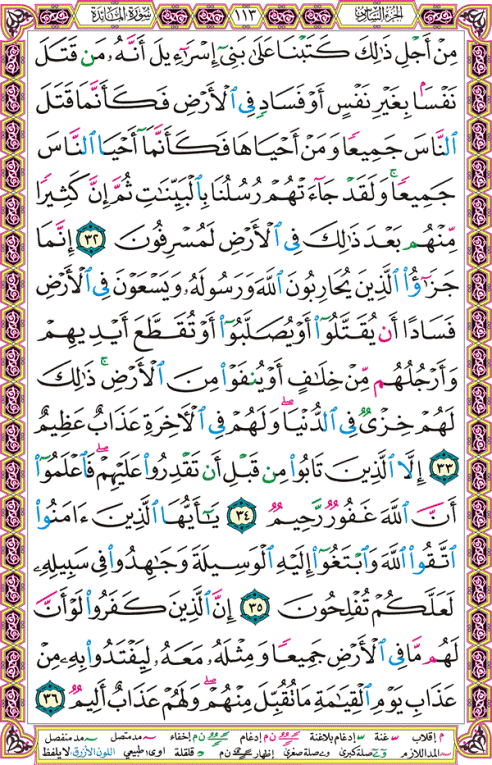 الجزء السادس ١١٣ سورة المائدة
مِنْ أَجْلِ ذَٰلِكَ كَتَبْنَا عَلَىٰ بَنِىٓ إِسْرَٰٓءِيلَ أَنَّهُۥ مَن قَتَلَ
نَفْسًۢا بِغَيْرِ نَفْسٍ أَوْ فَسَادٍ فِى ٱلْأَرْضِ فَكَأَنَّمَا قَتَلَ
ٱلنَّاسَ جَمِيعًا وَمَنْ أَحْيَاهَا فَكَأَنَّمَآ أَحْيَا ٱلنَّاسَ
جَمِيعًا ۚ وَلَقَدْ جَآءَتْهُمْ رُسُلُنَا بِٱلْبَيِّنَٰتِ ثُمَّ إِنَّ كَثِيرًا
مِّنْهُم بَعْدَ ذَٰلِكَ فِى ٱلْأَرْضِ لَمُسْرِفُونَ ٣٢ إِنَّمَا
جَزَٰٓؤُا۟ ٱلَّذِينَ يُحَارِبُونَ ٱللَّهَ وَرَسُولَهُۥ وَيَسْعَوْنَ فِى ٱلْأَرْضِ
فَسَادًا أَن يُقَتَّلُوٓا۟ أَوْ يُصَلَّبُوٓا۟ أَوْ تُقَطَّعَ أَيْدِيهِمْ
وَأَرْجُلُهُم مِّنْ خِلَٰفٍ أَوْ يُنفَوْا۟ مِنَ ٱلْأَرْضِ ۚ ذَٰلِكَ
لَهُمْ خِزْىٌ فِى ٱلدُّنْيَا ۖ وَلَهُمْ فِى ٱلْءَاخِرَةِ عَذَابٌ عَظِيمٌ
٣٣ إِلَّا ٱلَّذِينَ تَابُوا۟ مِن قَبْلِ أَن تَقْدِرُوا۟ عَلَيْهِمْ ۖ فَٱعْلَمُوٓا۟
أَنَّ ٱللَّهَ غَفُورٌ رَّحِيمٌ ٣٤ يَٰٓأَيُّهَا ٱلَّذِينَ ءَامَنُوا۟
ٱتَّقُوا۟ ٱللَّهَ وَٱبْتَغُوٓا۟ إِلَيْهِ ٱلْوَسِيلَةَ وَجَٰهِدُوا۟ فِى سَبِيلِهِۦ
لَعَلَّكُمْ تُفْلِحُونَ ٣٥ إِنَّ ٱلَّذِينَ كَفَرُوا۟ لَوْ أَنَّ
لَهُم مَّا فِى ٱلْأَرْضِ جَمِيعًا وَمِثْلَهُۥ مَعَهُۥ لِيَفْتَدُوا۟ بِهِۦ مِنْ
عَذَابِ يَوْمِ ٱلْقِيَٰمَةِ مَا تُقُبِّلَ مِنْهُمْ ۖ وَلَهُمْ عَذَابٌ أَلِيمٌ ٣٦
م إقلاب س غنة س إدغام بلاغنة ن م إدغام ن م إخفاء مد متصل مد منفصل
المد اللازم صلة كبرى صلة صغرى إظهار ن م قلقلة اوى: طبيعي اللون الأزرق: لا يلفظ